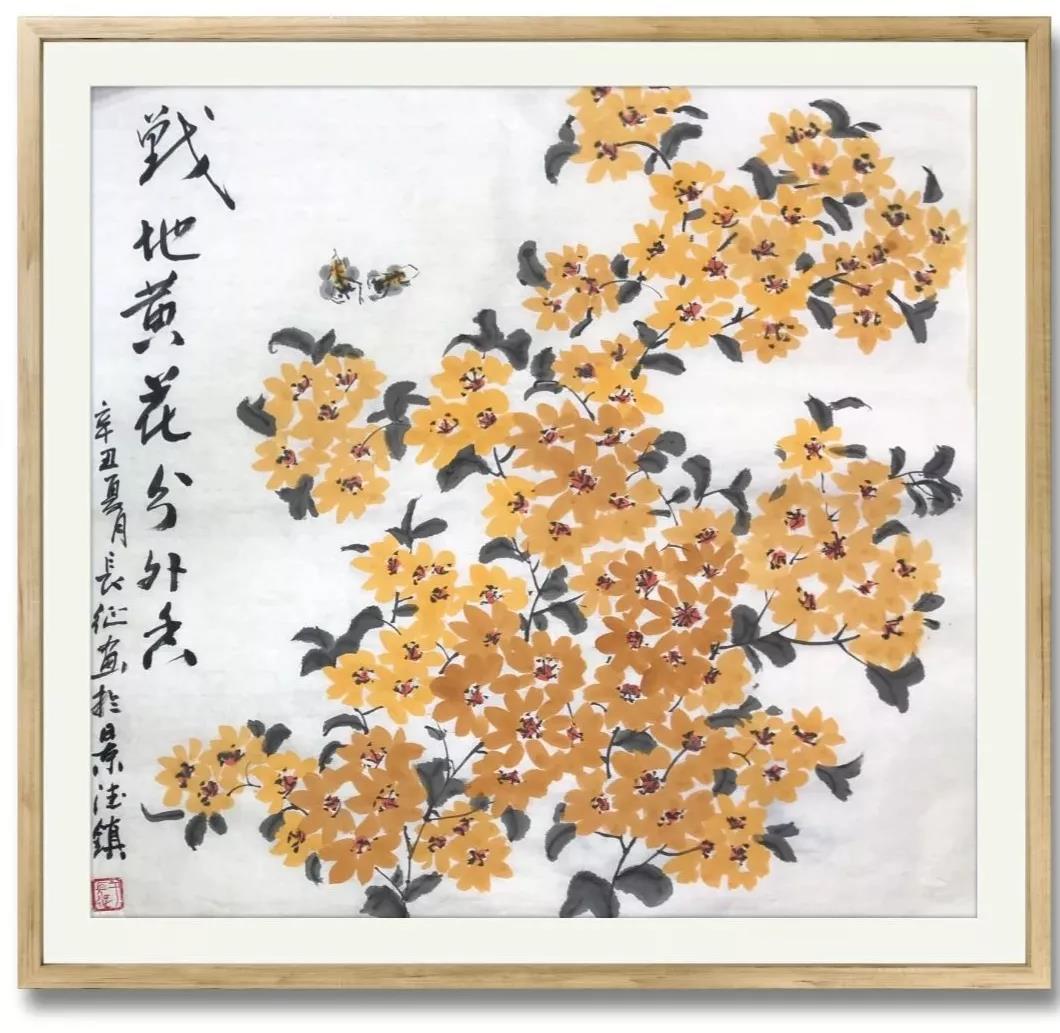 戰地黄花分外香
辛丑夏月長征画於景德鎮